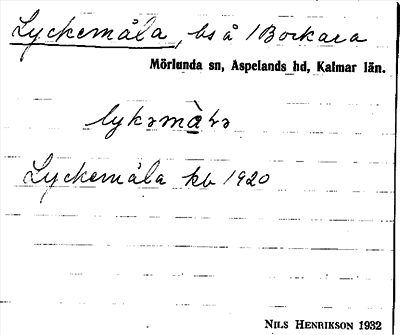 Lyckemåla, bs å 1 Bockara
Mörlunda sn, Aspelands hd, Kalmar län.
Lyckemåla kb 1920
NILS HENRIKSON 1932